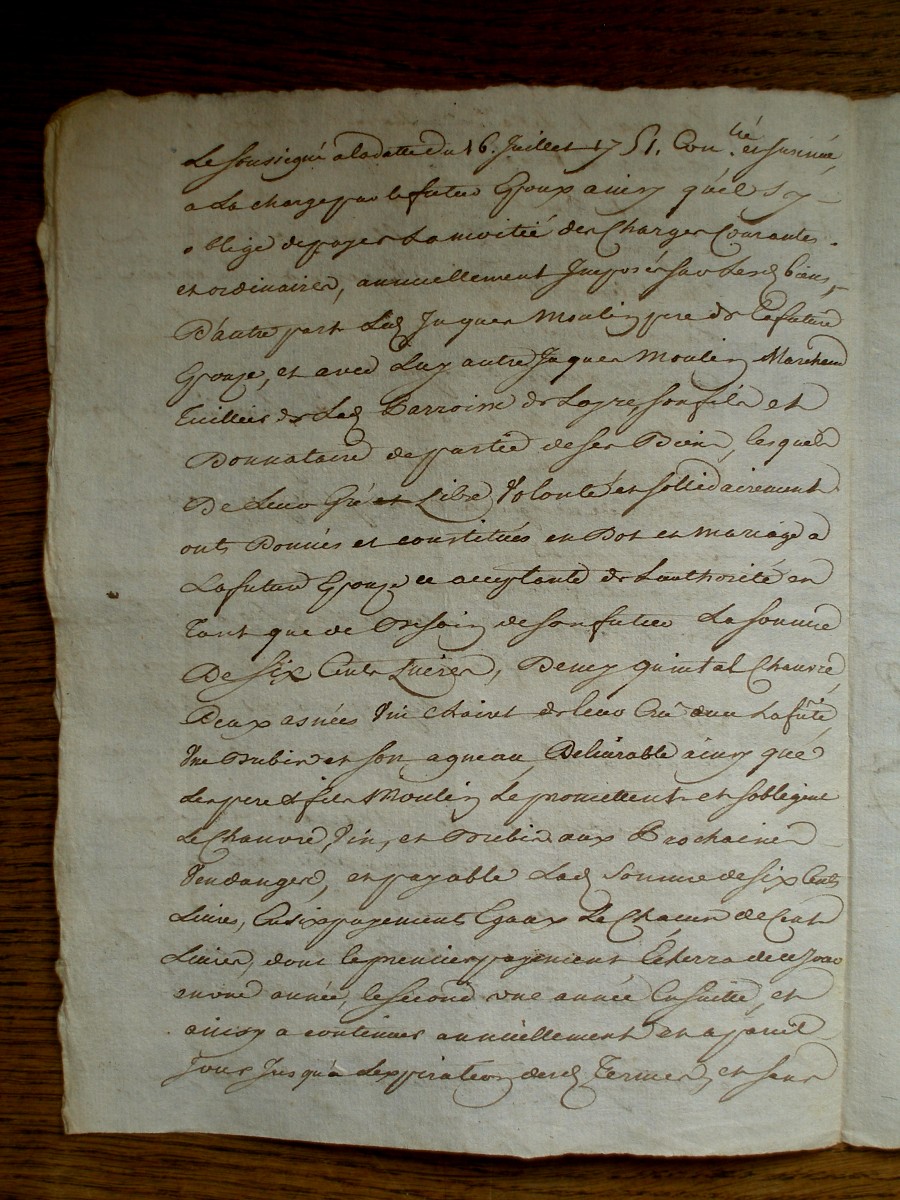 Le sousigné a la datte du 16. Juillet 1751. Con.lé et insinué,
a La charge par le futur Epoux ainsy qu'il s'y
oblige de payer La moitié des Charges Courantes
et ordinaires, annuellement Imposés sur Lesd. biens,
D'autre part Led. Jaques Moulin pere de La future
Epouze, et avec Luy autre Jaques Moulin Marchand
Tuillier de Lad. Parroisse de son fils et
Donnataire de partie de ses Biens, lesquels
De Leur Gré et Libre Volonté et sollidairement
onts Donnés et constitués en Dot et mariage a
La future Epouze ce acceptante de L'authorité en
Tant que de Besoin de son futur La somme
De Six Cents Livres, Demy quintal Chanvre,
Deux asnées Vin Clairet de leur Cru dud. Lafûte
Une Brebis et son agneau, Delivrable ainsy que
Les pere & fils Moulin Le promettent et sobligent
Le Chanvre, Vin, et Brebis aux Prochaines
Vendanges, et payable Lad. Somme de Six Cents
Livres, En six payements Egaux Le Chacun de Cent
Livres, dont le premier payement Echerra de ce Jour
en une année, le second une année Ensuitte, et
ainsy a continuer annuellement et a pareil
Jour Jusqu'a Lexpiration desd. Termes, et sans